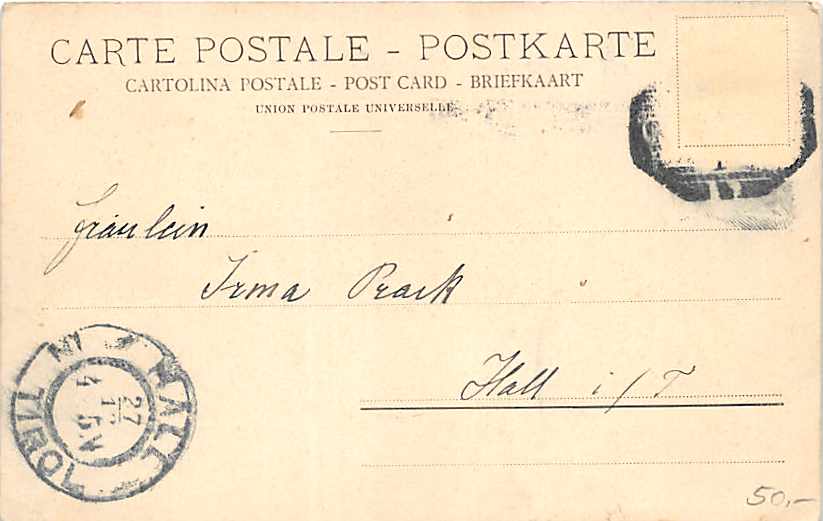 CARTE POSTALE - POSTKARTE
CARTOLINA POSTALE - POST CARD - BRIEFKAART
UNION POSTALE UNIVERSELLE
Fräulein
Irma Prack
Hall i/T
HALL IN TIROL
27
50,-